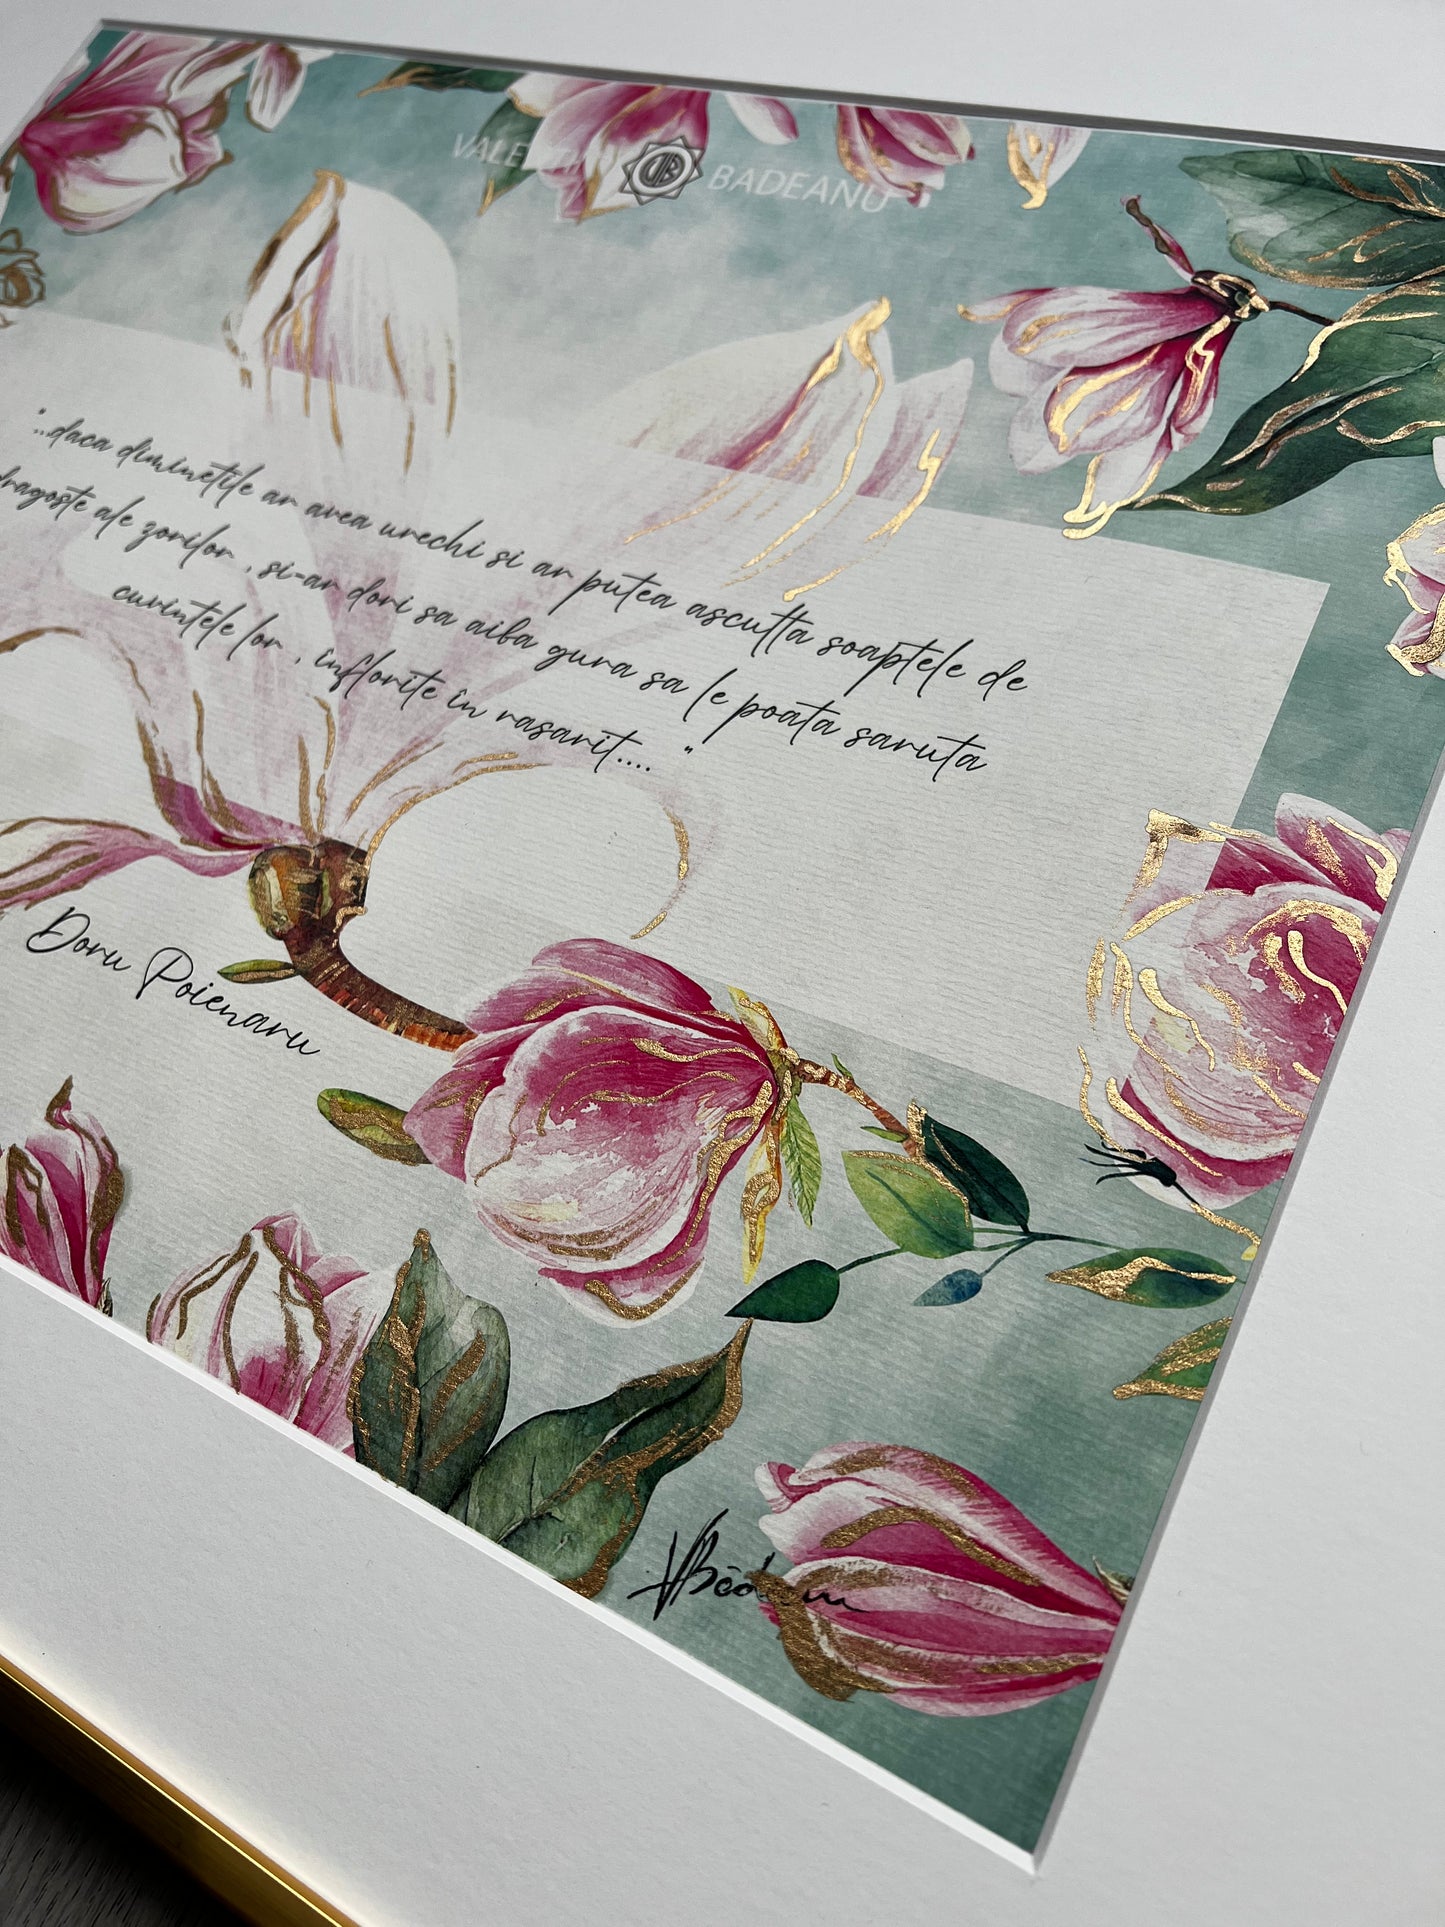 BADEANU
"...daca diminetile ar avea urechi si ar putea asculta soaptele de
dragoste ale zorilor , si-ar dori sa aiba gura sa le poata saruta
cuvintele lor , inflorite in rasarit.... "
Doru Poienaru